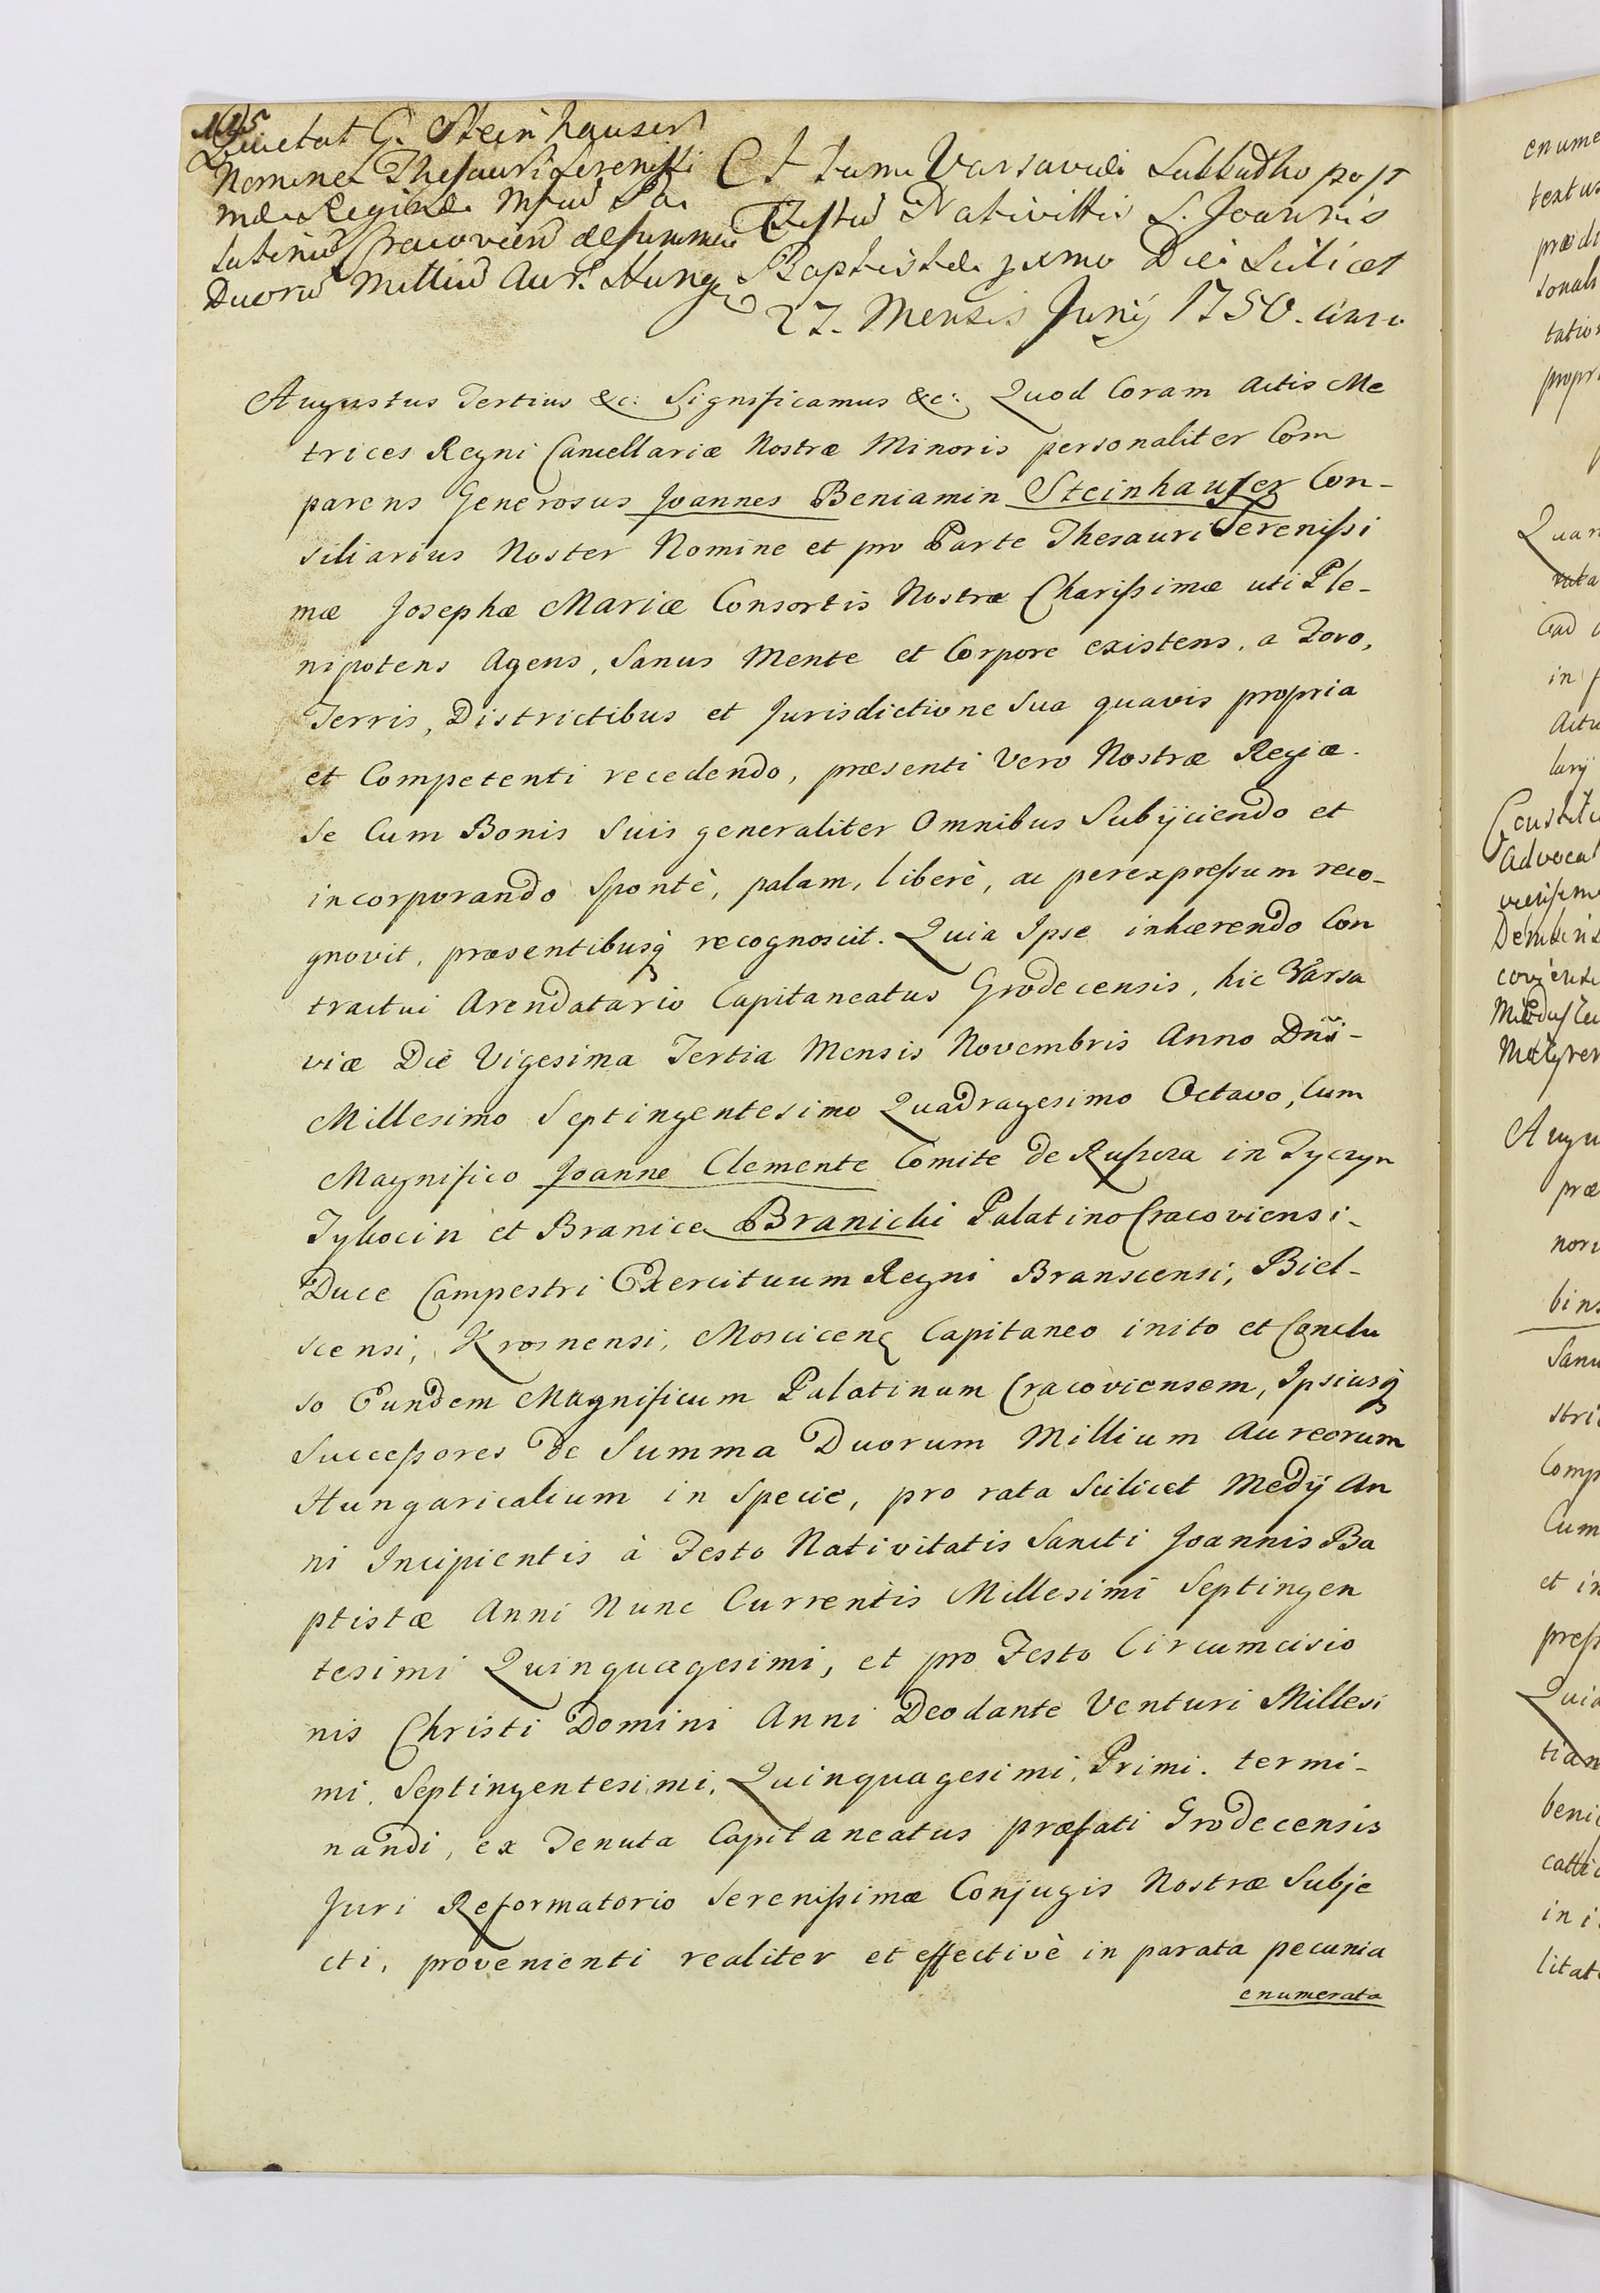 115
Quietat G. Steinhauser
Nomine Thesauri Serenissi
mæ Reginæ Mfcus Pa
latinus Cracovien de summa
Duoru Milliu Aur. Hung.
Actum Varsaviæ Sabbatho post
Festu Nativittis S. Joannis
Baptistæ pxmo Die Scilicet
27. Mensis Junij 1750. anno
Augustus Tertius &c: Significamus &c: Quod Coram Actis Me
trices Regni Cancellariæ Nostræ Minoris personaliter Com
parens Generosus Joannes Beniamin Steinhauser Con-
siliarius Noster Nomine et pro Parte Thesauri Serenissi
mæ Josephæ Mariæ Consortis Nostræ Charissimæ uti Ple-
nipotens Agens, Sanus Mente et Corpore existens, a Foro,
Terris, Districtibus et Jurisdictione Sua quavis propria
et Competenti recedendo, præsenti Vero Nostræ Regiæ
Se Cum Bonis Suis generaliter Omnibus Subijciendo et
incorporando Spontè, palam, liberè, ac perexpressum reco-
gnovit, præsentibusq recognoscit. Quia Ipse inhærendo Con
tractui Arendatario Capitaneatus Grodecensis, hic Varsa
viæ Die Vigesima Tertia Mensis Novembris Anno Dni-
Millesimo Septingentesimo Quadragesimo Octavo, Cum
Magnifico Joanne Clemente Comite de Ruszcza in Tyczyn
Tykocin et Branice Branicki Palatino Cracoviensi-
Duce Campestri Exercituum Regni Branscensi, Biel-
scensi, Krosnensi, Moscicen Capitaneo inito et Conclu
so Eundem Magnificum Palatinum Cracoviensem, Ipsiusq
Successores de Summa Duorum Millium Aureorum
Hungaricalium in Specie, pro rata Scilicet Medij An
ni Incipientis à Festo Nativitatis Sancti Joannis Ba
ptistæ Anni Nunc Currentis Millesimi Septingen
tesimi Quinquagesimi, et pro Festo Circumcisio
nis Christi Domini Anni Deodante Venturi Millesi
mi. Septingentesimi. Quinquagesimi. Primi. termi-
nandi, ex Tenuta Capitaneatus præfati Grodecensis
Juri Reformatorio Serenissimæ Conjugis Nostræ Subje
cti, provenienti realiter et effectivè in parata pecunia
enumerata
enume
textus
prædi
sonali
tation
propri
Quar
in
Actu
Constitu
Advocat
Augu
præ
nori
bins
Sanu
stri
Comp
Cum
et in
press
Quia
tiam
beni
in i
litat